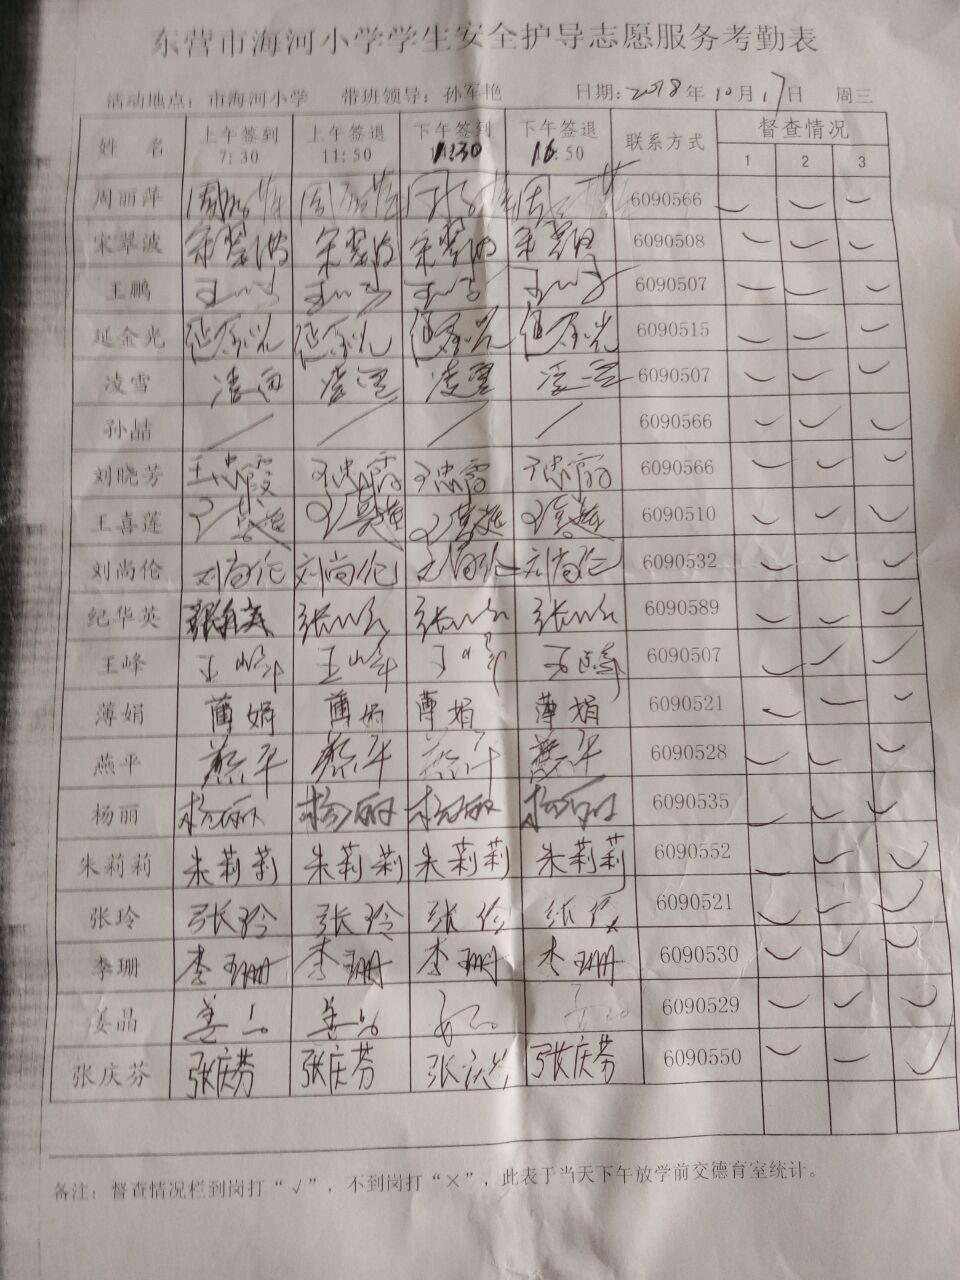 东营市海河小学学生安全护导志愿服务考勤表
活动地点：市海河小学 带班领导：孙军艳 日期：2018年10月17日 周三
姓 名 上午签到 7:30 上午签退 11:50 下午签到 1:30 下午签退 16:50 联系方式 督查情况
1 2 3
周丽萍 6090566
宋翠波 宋翠波 宋翠波 宋翠波 宋翠波 6090508
王鹏 6090507
延金光 延金光 延金光 延金光 延金光 6090515
凌雪 凌雪 凌雪 凌雪 凌雪 6090507
孙喆 / / / / 6090566
刘晓芳 王忠霞 王忠霞 王忠霞 王忠霞 6090566
王喜莲 王喜莲 王喜莲 王喜莲 王喜莲 6090510
刘尚伦 刘尚伦 刘尚伦 刘尚伦 刘尚伦 6090532
纪华英 6090589
王峰 王峰 王峰 王峰 王峰 6090507
薄娟 薄娟 薄娟 薄娟 薄娟 6090521
燕平 燕平 燕平 燕平 燕平 6090528
杨丽 杨丽 杨丽 杨丽 杨丽 6090535
朱莉莉 朱莉莉 朱莉莉 朱莉莉 朱莉莉 6090552
张玲 张玲 张玲 张玲 张玲 6090521
李珊 李珊 李珊 李珊 李珊 6090530
姜晶 姜晶 姜晶 6090529
张庆芬 张庆芬 张庆芬 张庆芬 张庆芬 6090550
备注：督查情况栏到岗打“√”，不到岗打“×”，此表于当天下午放学前交德育室统计。